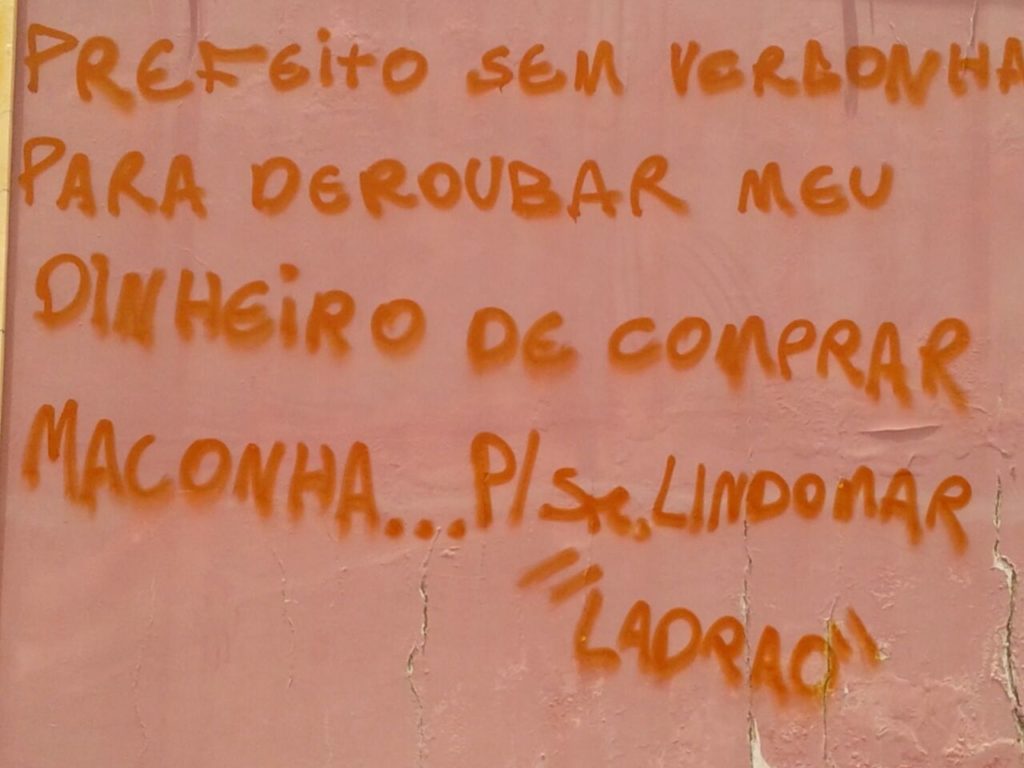 PREFEITO SEM VERGONHA
PARA DEROUBAR MEU
DINHEIRO DE COMPRAR
MACONHA.... P/ LINDOMAR
"LADRAO"